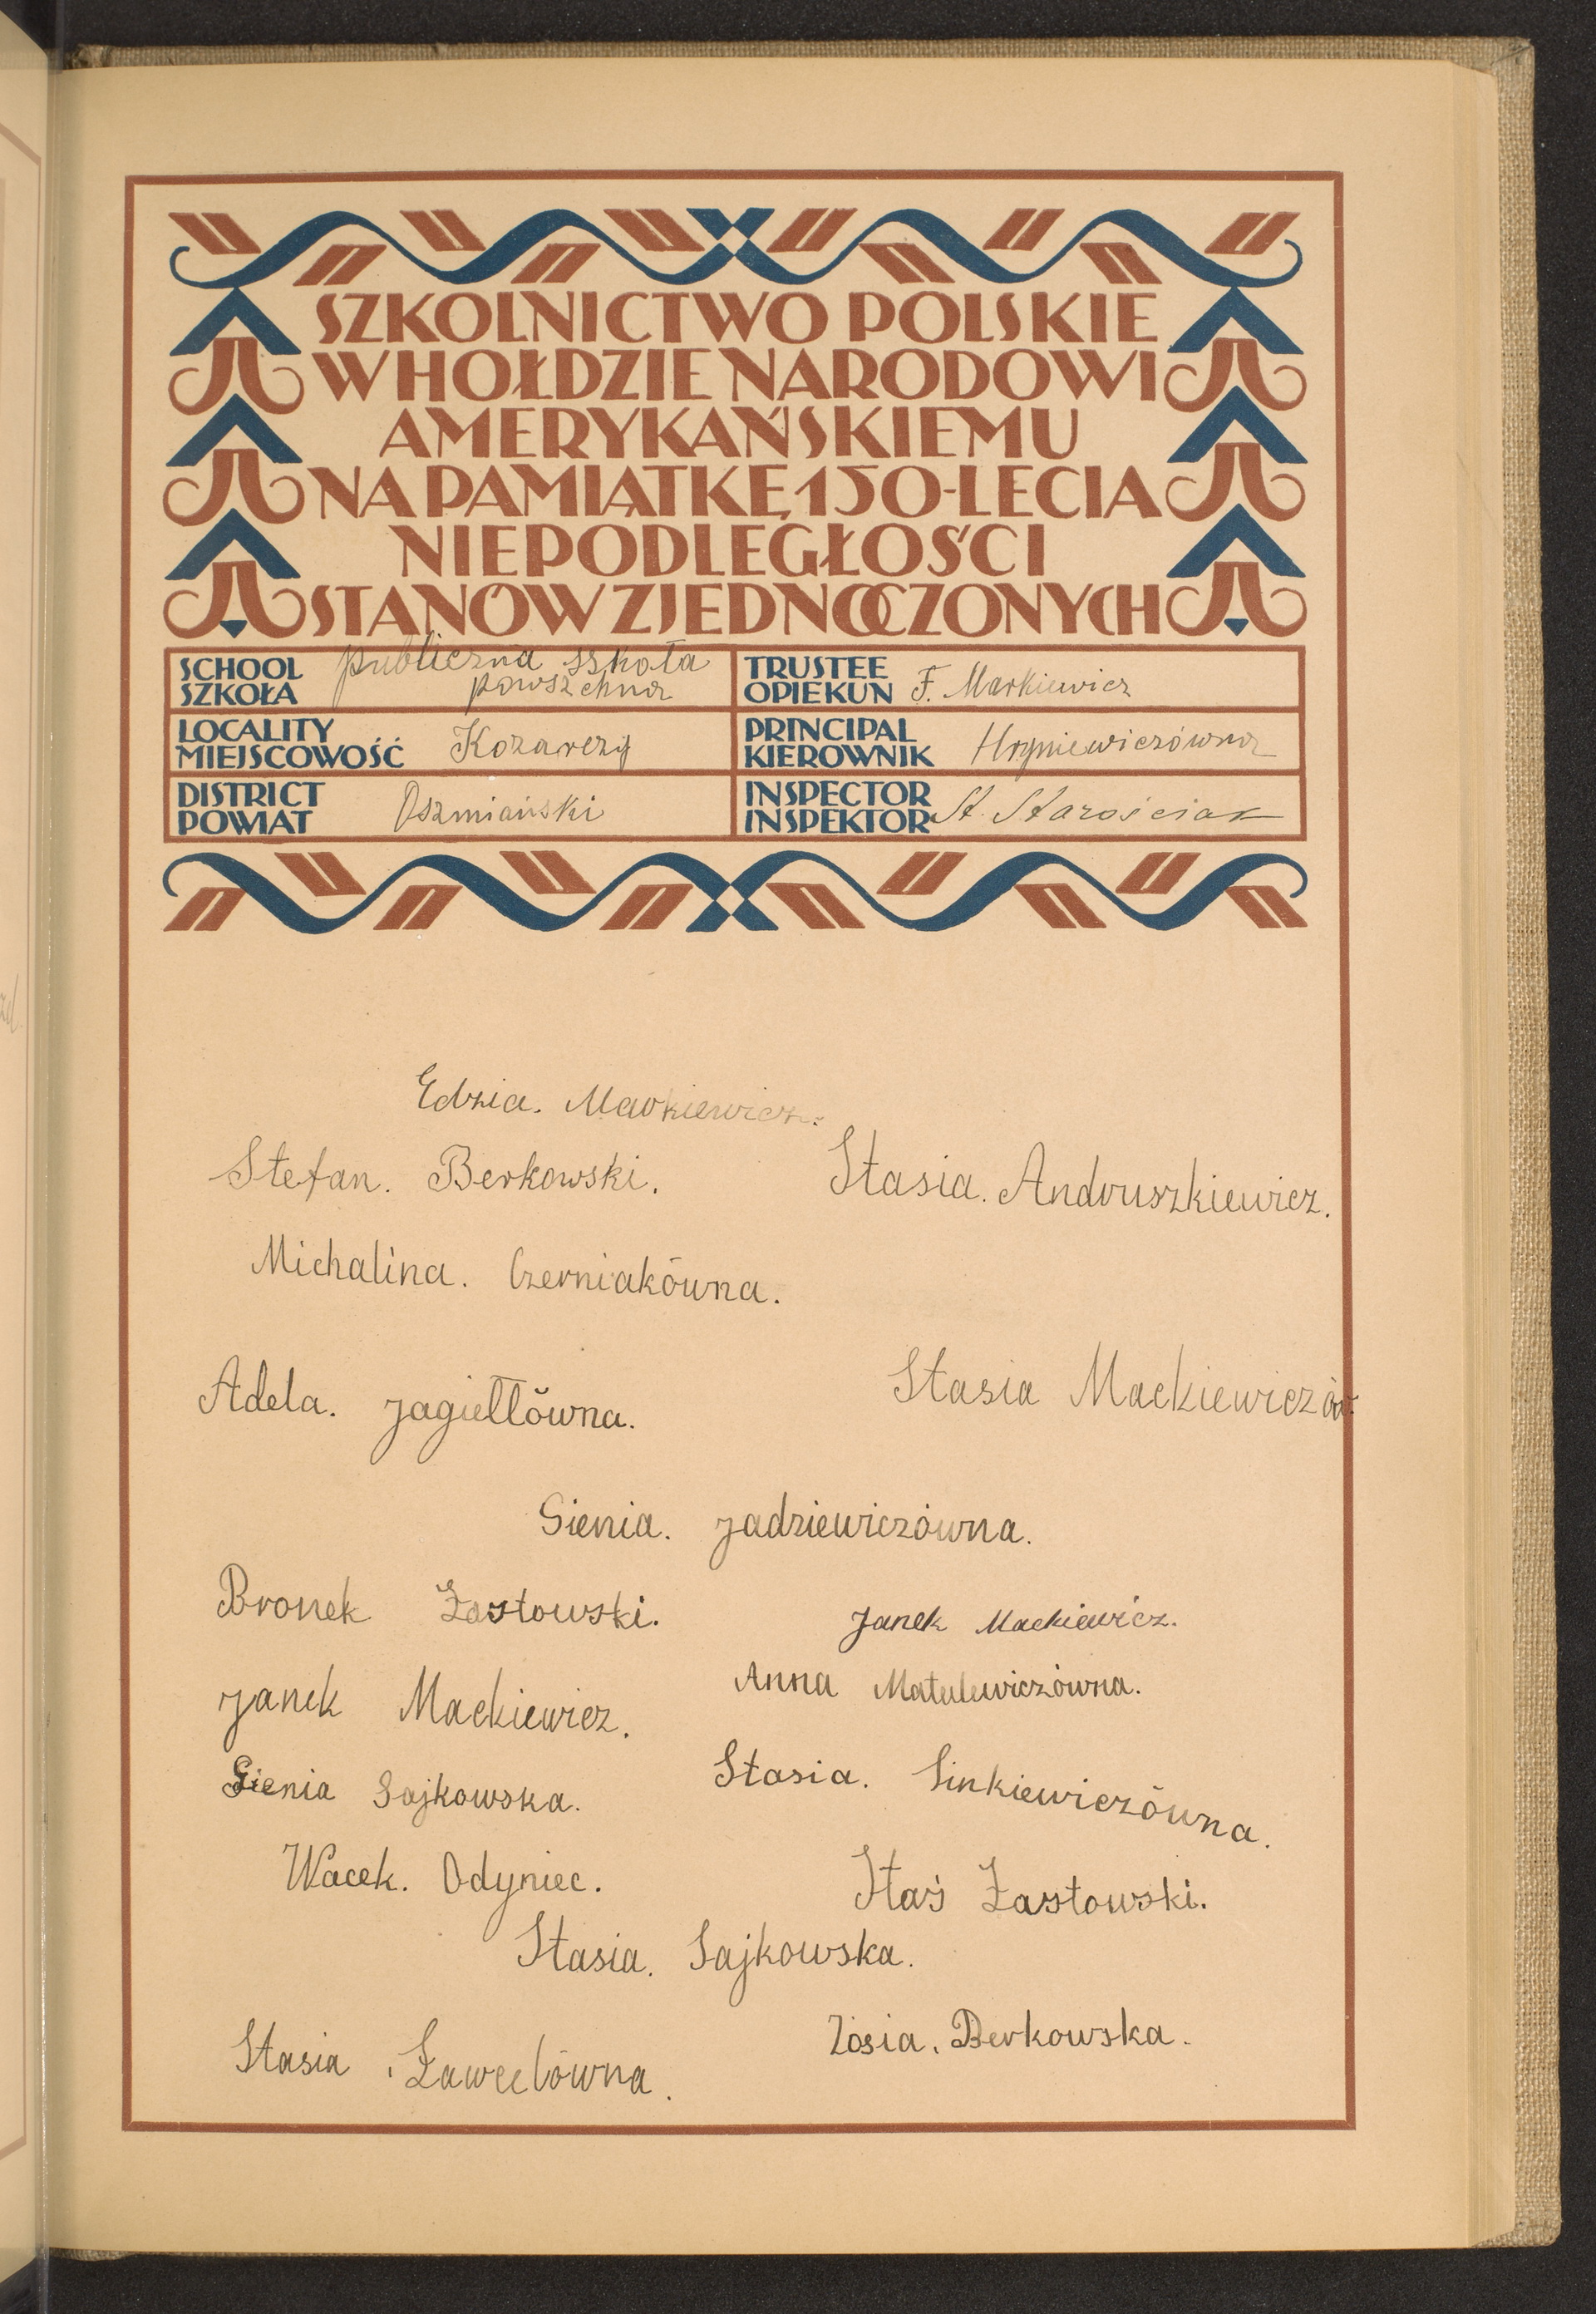 SZKOLNICTWO POLSKIE
W HOŁDZIE NARODOWI
AMERYKAŃSKIEMU
NA PAMIĄTKĘ 150-LECIA
NIEPODLEGŁOŚCI
STANÓW ZJEDNOCZONYCH
SCHOOL
SZKOŁA
publiczna szkoła
powszechna
TRUSTEE
OPIEKUN
F. Markiewicz
LOCALITY
MIEJSCOWOŚĆ
PRINCIPAL
KIEROWNIK
Hryniewiczówna
DISTRICT
POWIAT
Oszmiański
INSPECTOR
INSPEKTOR
St. Starościak
Edzia. Markiewicz.
Stefan. Berkowski.
Stasia. Andruszkiewicz.
Michalina. Czerniakówna.
Adela. Jagiełłówna.
Stasia Mackiewiczów.
Gienia. Jadziewiczówna.
Bronek Żastowski.
Janek Mackiewicz.
Janek Mackiewicz.
Anna Matulewiczówna.
Gienia Sajkowska.
Stasia. Sinkiewiczówna.
Wacek. Odyniec.
Staś Żastowski.
Stasia. Sajkowska.
Zosia. Berkowska.
Stasia